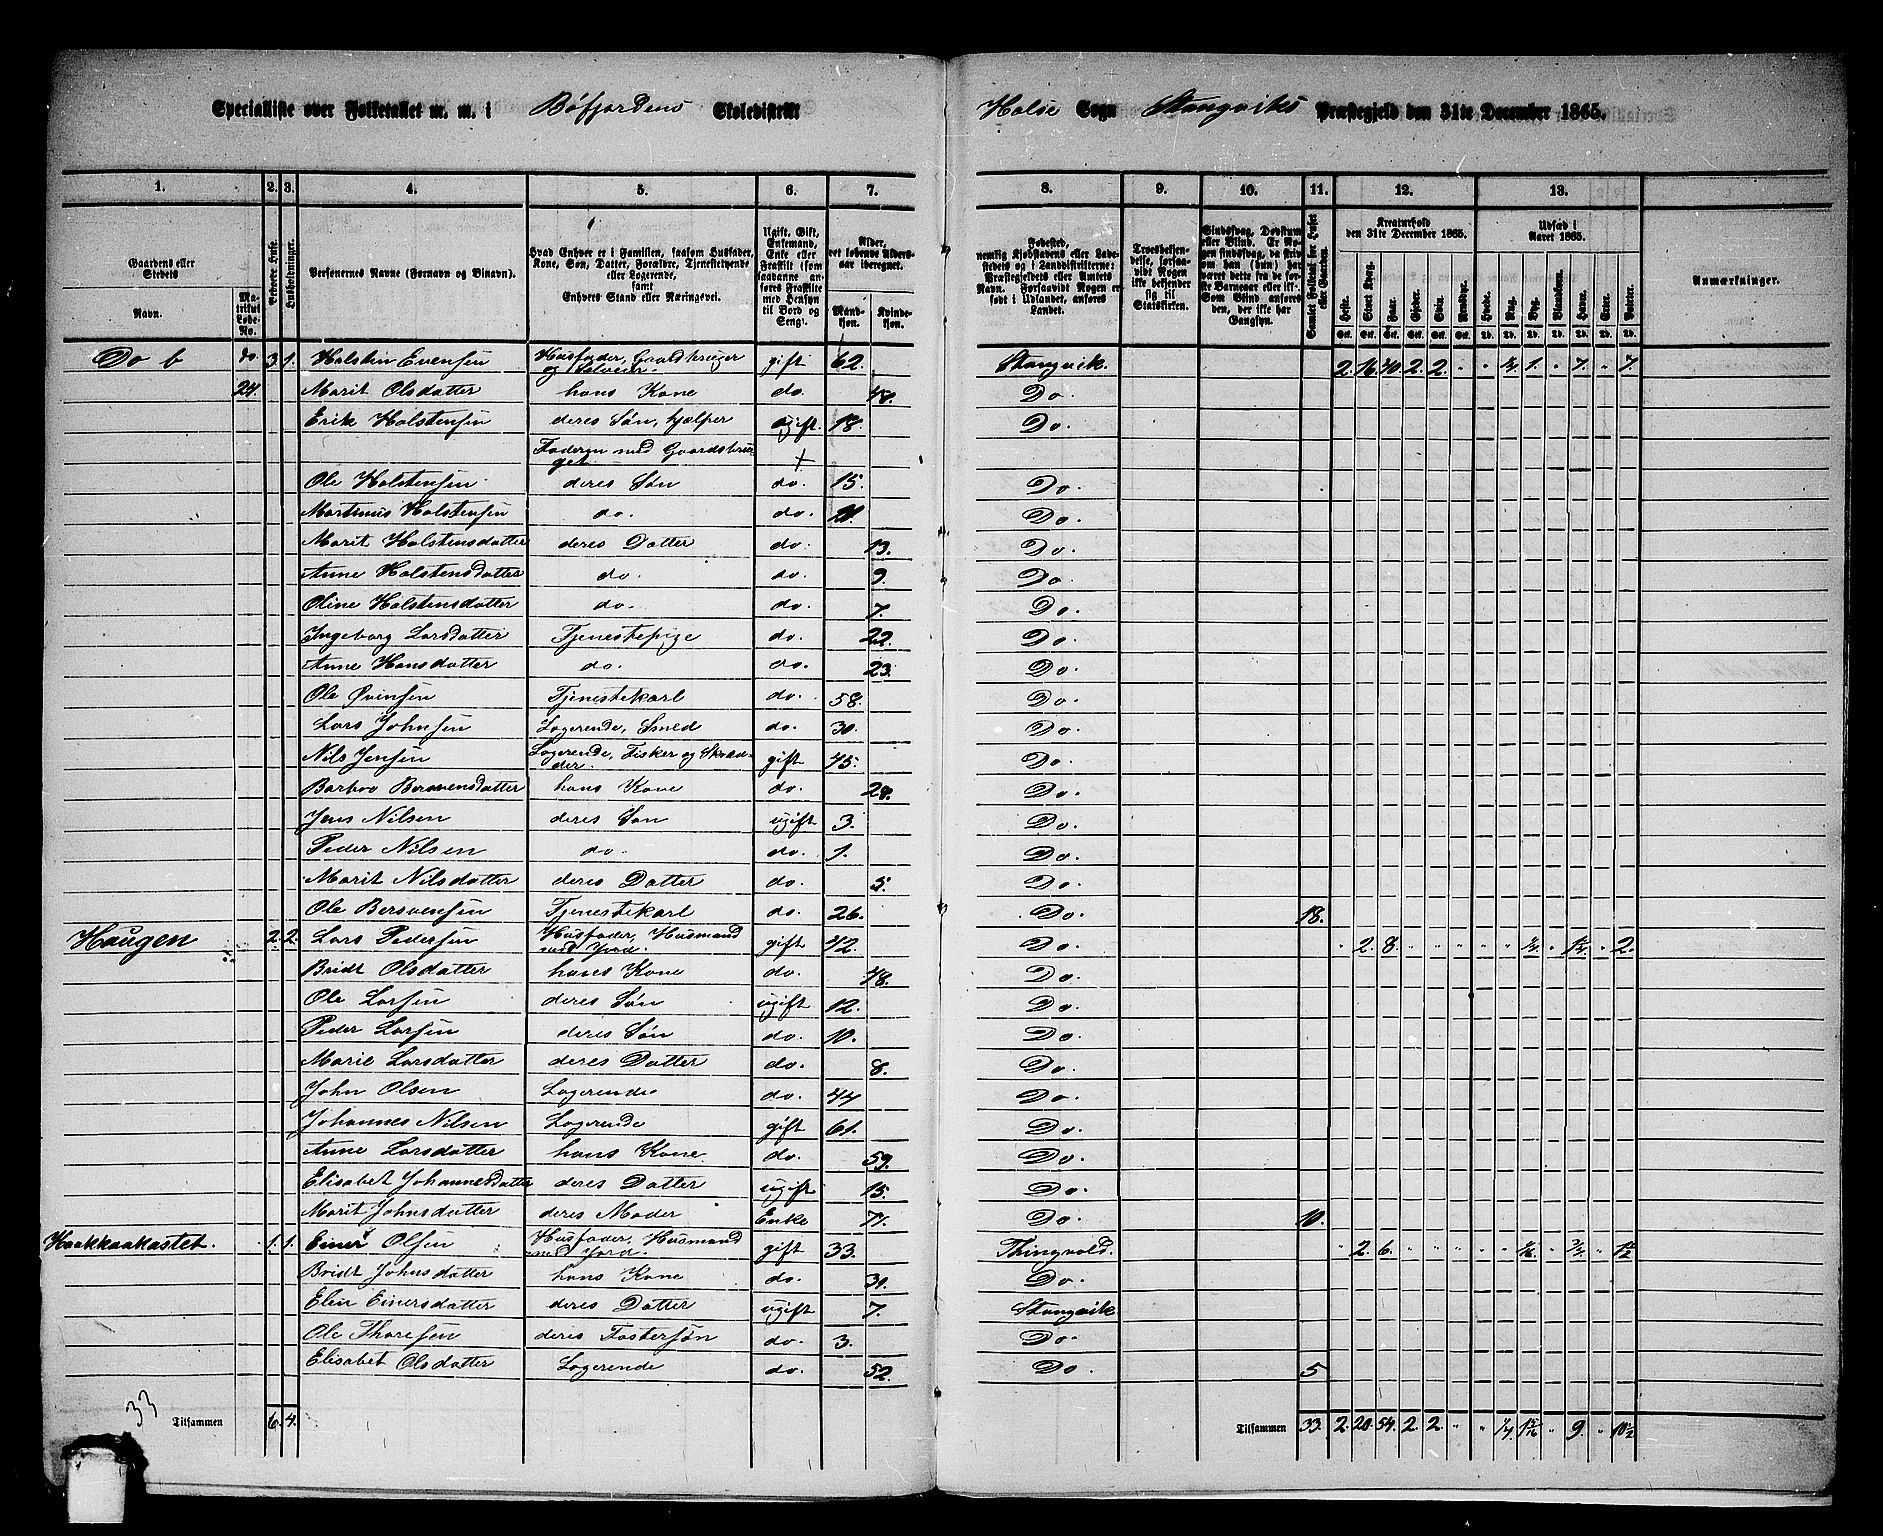 Specialliste over Folketallet m. m. i Bøfjordens Skoledistrikt Halse Sogn Stangviks Præstegjeld den 31te December 1865.
1. 2. 3. 4. 5. 6. 7. 8. 9. 10. 11. 12. 13.
Gaardens eller Stedets
Navn.
Matrikul Løbe-No.
Beboede Huse.
Husholdninger.
Personernes Navne (Fornavn og Binavn).
Hvad Enhver er i Familien, saasom Husfader, Kone, Søn, Datter, Forældre, Tjenestetyende eller Logerende, samt Enhvers Stand eller Næringsvei.
Ugift, Gift, Enkemand, Enke eller Fraskilt (som saadanne anføres Fraskilte med Hensyn til Bord og Seng).
Alder, det løbende Alders-aar iberegnet.
Mand-kjøn.
Kvinde-kjøn.
Fødested, nemlig Kjøbstadens eller Ladestedets og i Landdistrikterne: Præstegjeldets eller Amtets Navn. Forsaavidt Nogen er født i Udlandet, anføres Landet.
Troesbekjendelse, forsaavidt Nogen ikke bekjender sig til Statskirken.
Samlet Folketal for Huset eller Gaarden.
Kreaturhold den 31te December 1865.
Udsæd i Aaret 1865.
Anmærkninger.
Do b do. 3. 1. Halstin Evensen Husfader, Gaardbruger og Selveier gift 62. Stangvik. 2. 16. 40 2. 2. " " ¼ 1. " 7. " 7.
24. Marit Olsdatter hans Kone do. 48. Do.
Erik Halstensen deres Søn, hjælper ugift 18. Do.
Faderen med Gaardsbruget +
Ole Halstensen deres Søn do. 15. Do.
Martinus Halstensen do. do. Do.
Marit Halstensdatter deres Datter do. 13. Do.
Anne Halstensdatter do. do. 9. Do.
Oline Halstensdatter do. do. 7. Do.
Ingeborg Larsdatter Tjenestepige do. 22. Do.
Anne Hansdatter do. do. 23. Do.
Ole Øvensen Tjenestekarl do. 58. Do.
Lars Johnsen Logerende, Smed do. 30. Do.
Nils Jensen Logerende, Fisker og Skrædder. gift 45. Do.
Barbro Bersvensdatter hans Kone do. 28. Do.
Jens Nilsen deres Søn ugift 3. Do.
Peder Nilsen do. do. 1. Do.
Marit Nilsdatter deres Datter do. 5. Do.
Ole Bersvensen Tjenestekarl do. 26. Do. 18.
Haugen 2. 2. Lars Pedersen Husfader, Husmand med Jord. gift 42. Do. " 2. 8. " " " " " " 2.
Bridt Olsdatter hans Kone do. 48. Do.
Ole Larsen deres Søn ugift 12. Do.
Peder Larsen deres Søn do. 10. Do.
Marie Larsdatter deres Datter do. 8. Do.
John Olsen Logerende do. 44 Do.
Johannes Nilsen Logerende gift 61. Do.
Anne Larsdatter hans Kone do. 59. Do.
Elisabet Johannesdatter deres Datter ugift 15. Do.
Marit Johnsdatter deres Moder Enke 71. Do. 10.
Haakkaakastet. 1. 1. Einer Olsen Husfader, Husmand med Jord. gift 33. Thingvold. " 2 6. " " " " " ¾ " 1½
Bridt Johnsdatter hans Kone do. 30. Do.
Elen Einersdatter deres Datter ugift 7. Stangvik
Ole Tharesen deres Fostersøn do. 3. Do.
Elisabet Olsdatter Logerende do. 52. Do 5
33 Tilsammen 6. 4. Tilsammen 33. 2. 20. 54. 2. 2. " " ¼. " 9. " 10½